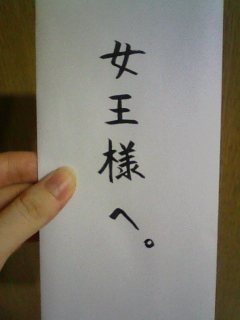 女王様へ。